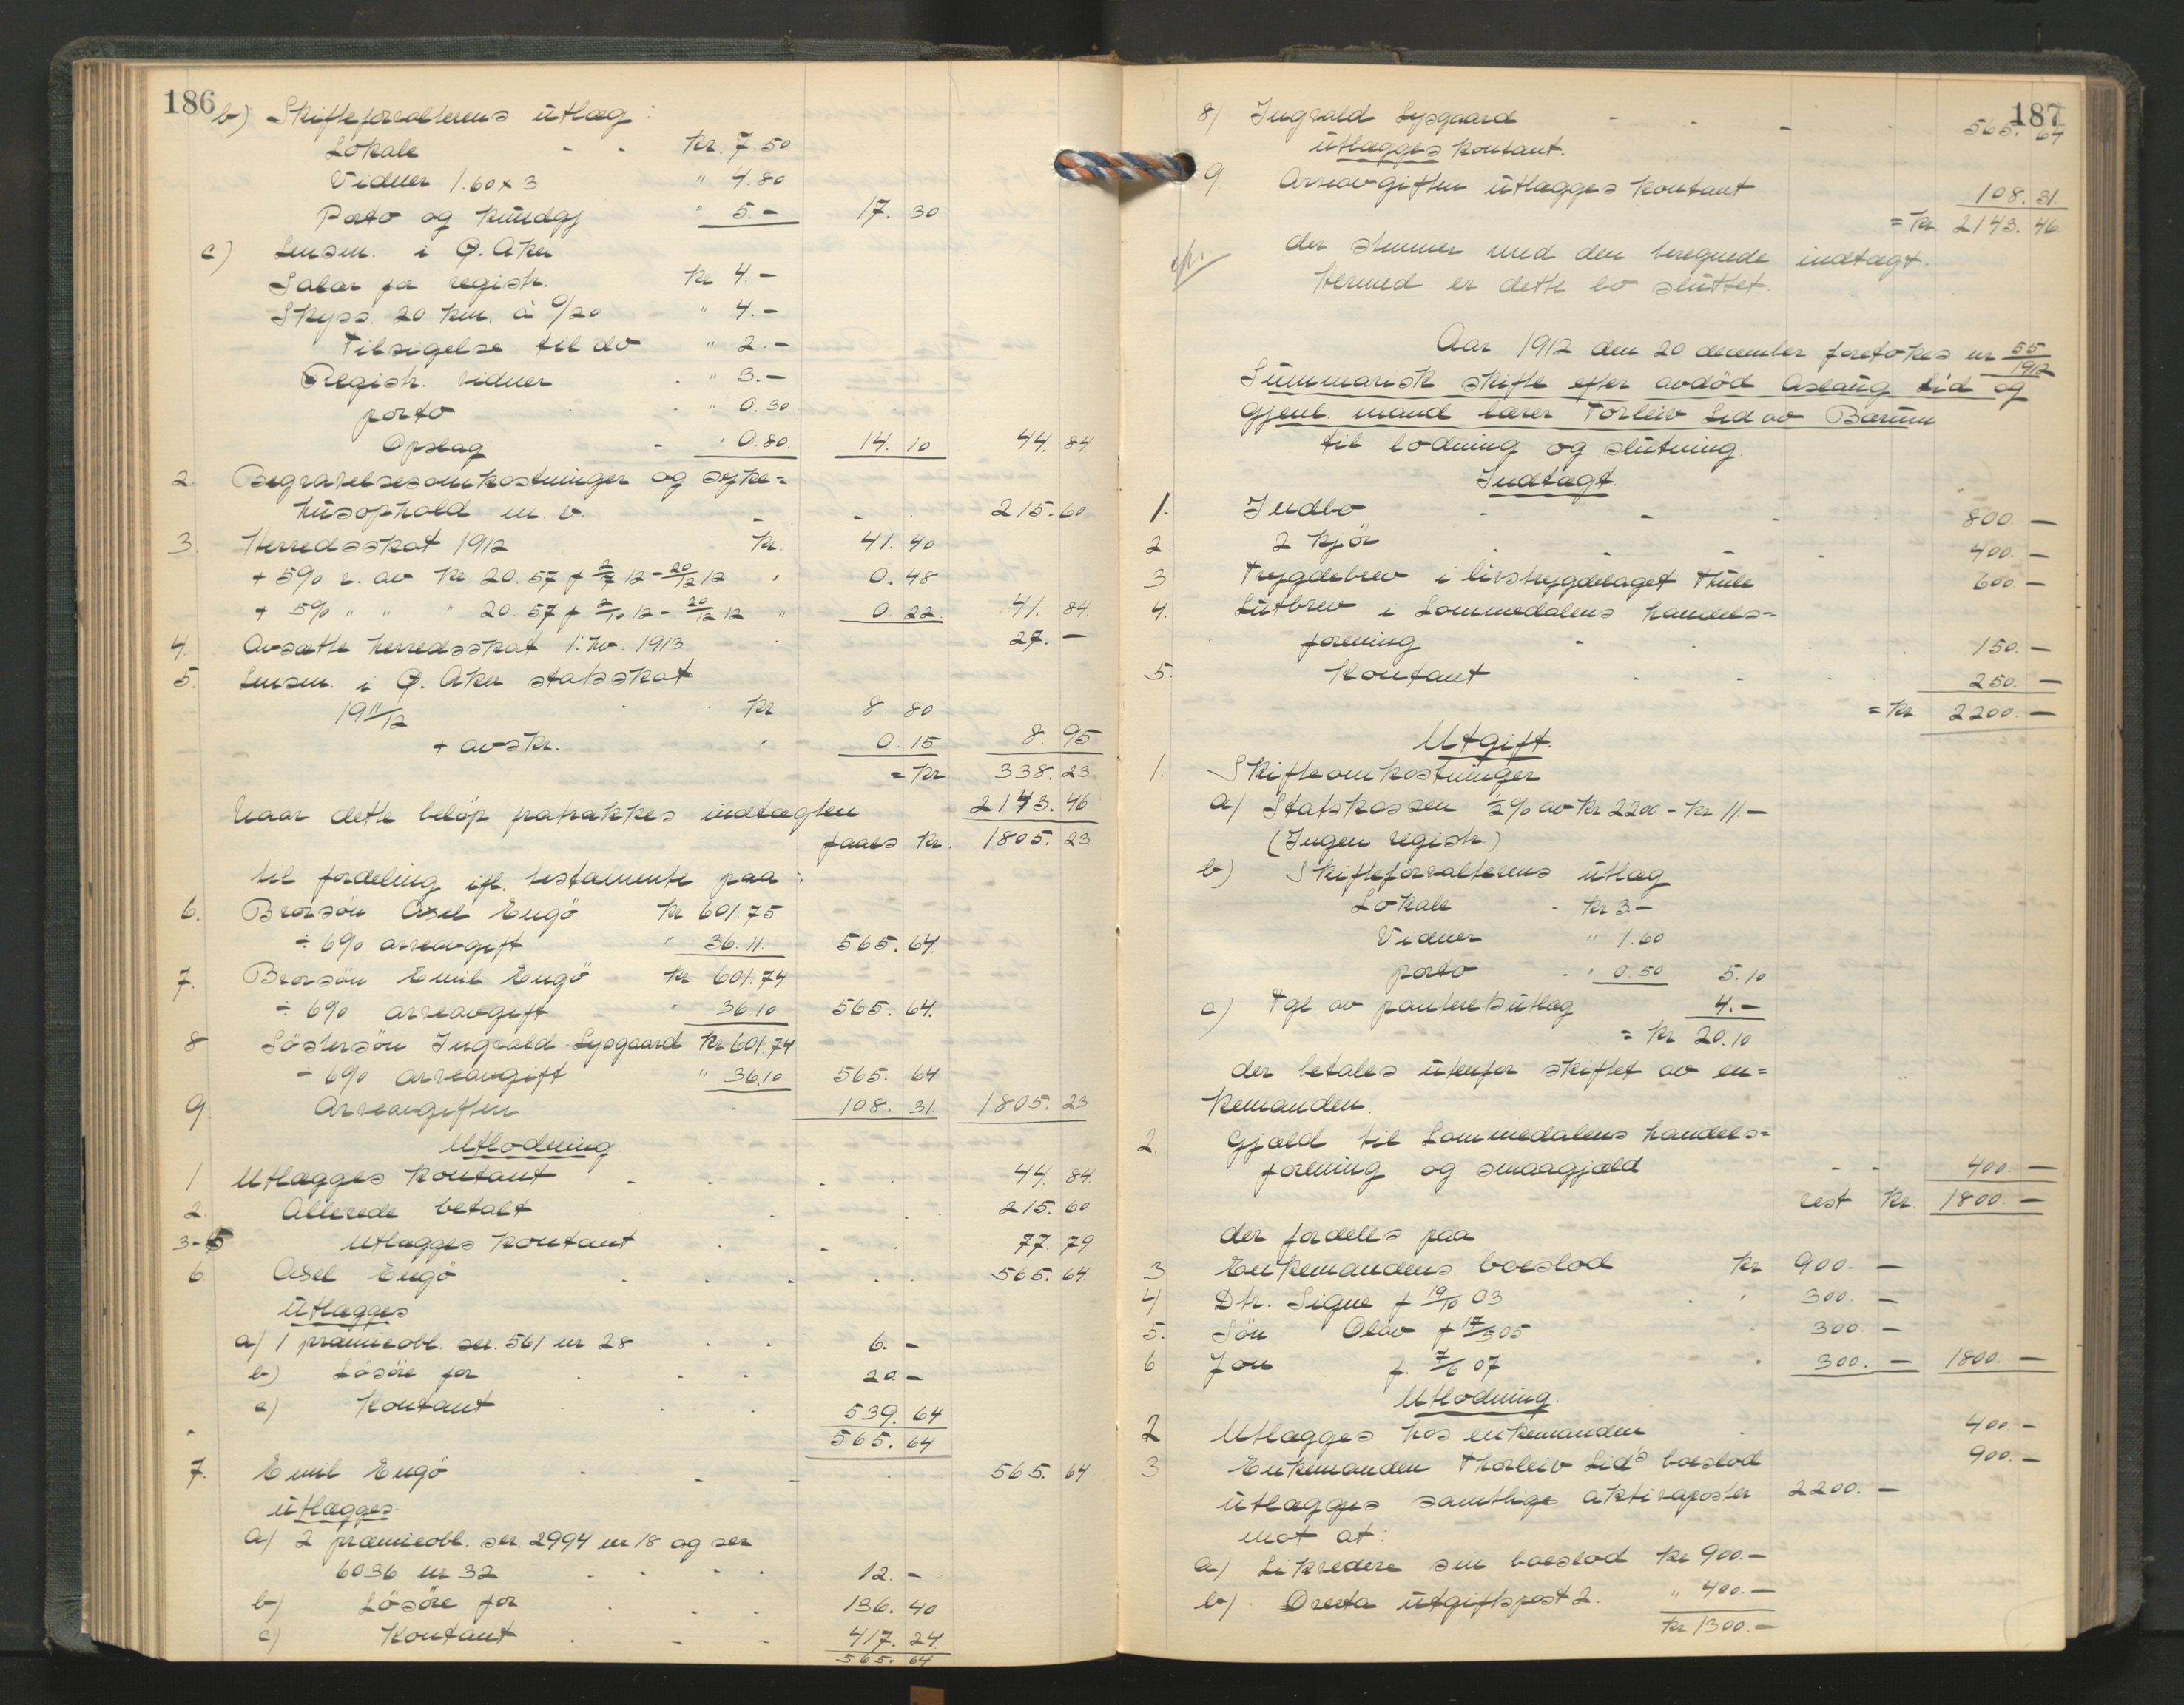 186
b) Skifteforvalterens utlæg:
Lokale - - kr. 7.50
Vidner 1.60 x 3 " 4.80
Porto og kundgj " 5.- 17. 30
c) Lensm. i Ø. Aker
Salær for registr. kr 4.-
Skyss. 20 km. à 0/20 " 4.-
Tilsigelse til do " 2.-
Registr. vidner " 3.-
porto " 0.30
Opslag - " 0.80. 14. 10 44. 84
2. Begravelsesomkostninger og syke=
husophold m. v. - - 215. 60
3. Herredsskat 1912 kr. 41. 40
+ 5% r. av kr 20.57 f 2/7 12 - 20/12 12 " 0. 48
+ 5% " " " 20.57 f 2/10 12 - 20/12 12 " 0. 22 41. 84.
4. Avsætte herredsskat 1. hv. 1913 27. -
5. Lensm. i Ø. Aker statsskat
19 11/12 kr. 8 80
+ avskr. " 0. 15 8. 95
= kr. 338. 23
Naar dette beløp fratrækkes indtægten 2143. 46
faaes kr. 1805. 23
til fordeling ifl. testamente paa:
6. Brorsön Axel Engö kr 601.75
÷ 6% arveavgift " 36.11. 565. 64.
7. Brorsön Emil Engö kr 601.74
÷ 6% arveavgift " 36.10 565. 64.
8 Söstersön Ingvald Lysgaard kr 601.74
÷ 6% arveavgift " 36.10 565. 64
9. Arveavgiften - 108. 31. 1805. 23
Utlodning
1. Utlægges kontant - - - - 44. 84.
2. Allerede betalt 215. 60
3-5 Utlægges kontant 77. 79
6 Axel Engö 565. 64.
utlægges
a) 1 præmieobl. ser. 561 nr 28 6. -
b) Lösöre for 20. -
c) Kontant 539. 64
565. 64
7. Emil Engö 565. 64
utlægges.
a) 2 præmieobl. ser. 2994 nr 18 og ser
6036 nr 32 12. -
b) Lösöre for 136. 40
c) Kontant 417. 24.
565. 64
187
8) Ingvald Lysgaard - - - 565. 64
utlægges kontant.
9. Arveavgiften utlægges kontant 108. 31
= kr 2143. 46.
der stemmer med den beregnede indtægt.
Hermed er dette bo sluttet.
Aar 1912 den 20 december foretokes nr 55/1912
Summarisk skifte efter avdød Aslaug Lid og
gjenl. mand lærer Torleiv Lid av Bærum
til lodning og slutning.
Indtægt.
1. Indbo - - - 800. -
2. 2 kjör 400. -
3 Trygdebrev i livstrygdelaget Thule 600 -
4. Lutbrev i Lommedalens handels=
forening 150. -
5. Kontant 250. -
= kr 2200. -
Utgift.
1. Skifteomkostninger
a) Statskassen 1/2% av kr 2200 - kr 11. -
(Ingen registr.)
b) Skifteforvalterens utlæg
Lokale - kr 3 -
Vidner " 1.60
porto " 0.50 5.10
c) Tgl av panterekutlæg 4. -
= kr 20.10
der betales utenfor skiftet av en=
kemanden.
2. Gjæld til Lommedalens handels=
forening og smaagjæld - - 400. -
rest kr. 1800. -
der fordeles paa
3 Enkemandens boeslod kr 900. -
4) Dtr. Signe f 19/10 03 " 300. -
5. Sön Olav f 17/3 05 " 300. -
6 Jon f. 7/6 07 300. - 1800. -
Utlodning.
2 Utlægges hos enkemanden 400. -
3 Enkemanden Thorleiv Lid's boeslod 900. -
utlægges samtlige aktivaposter 2200. -
mot at:
a) Likvidere sin boeslod kr 900. -
b) Overta utgiftspost 2. " 400. -
kr 1300. -